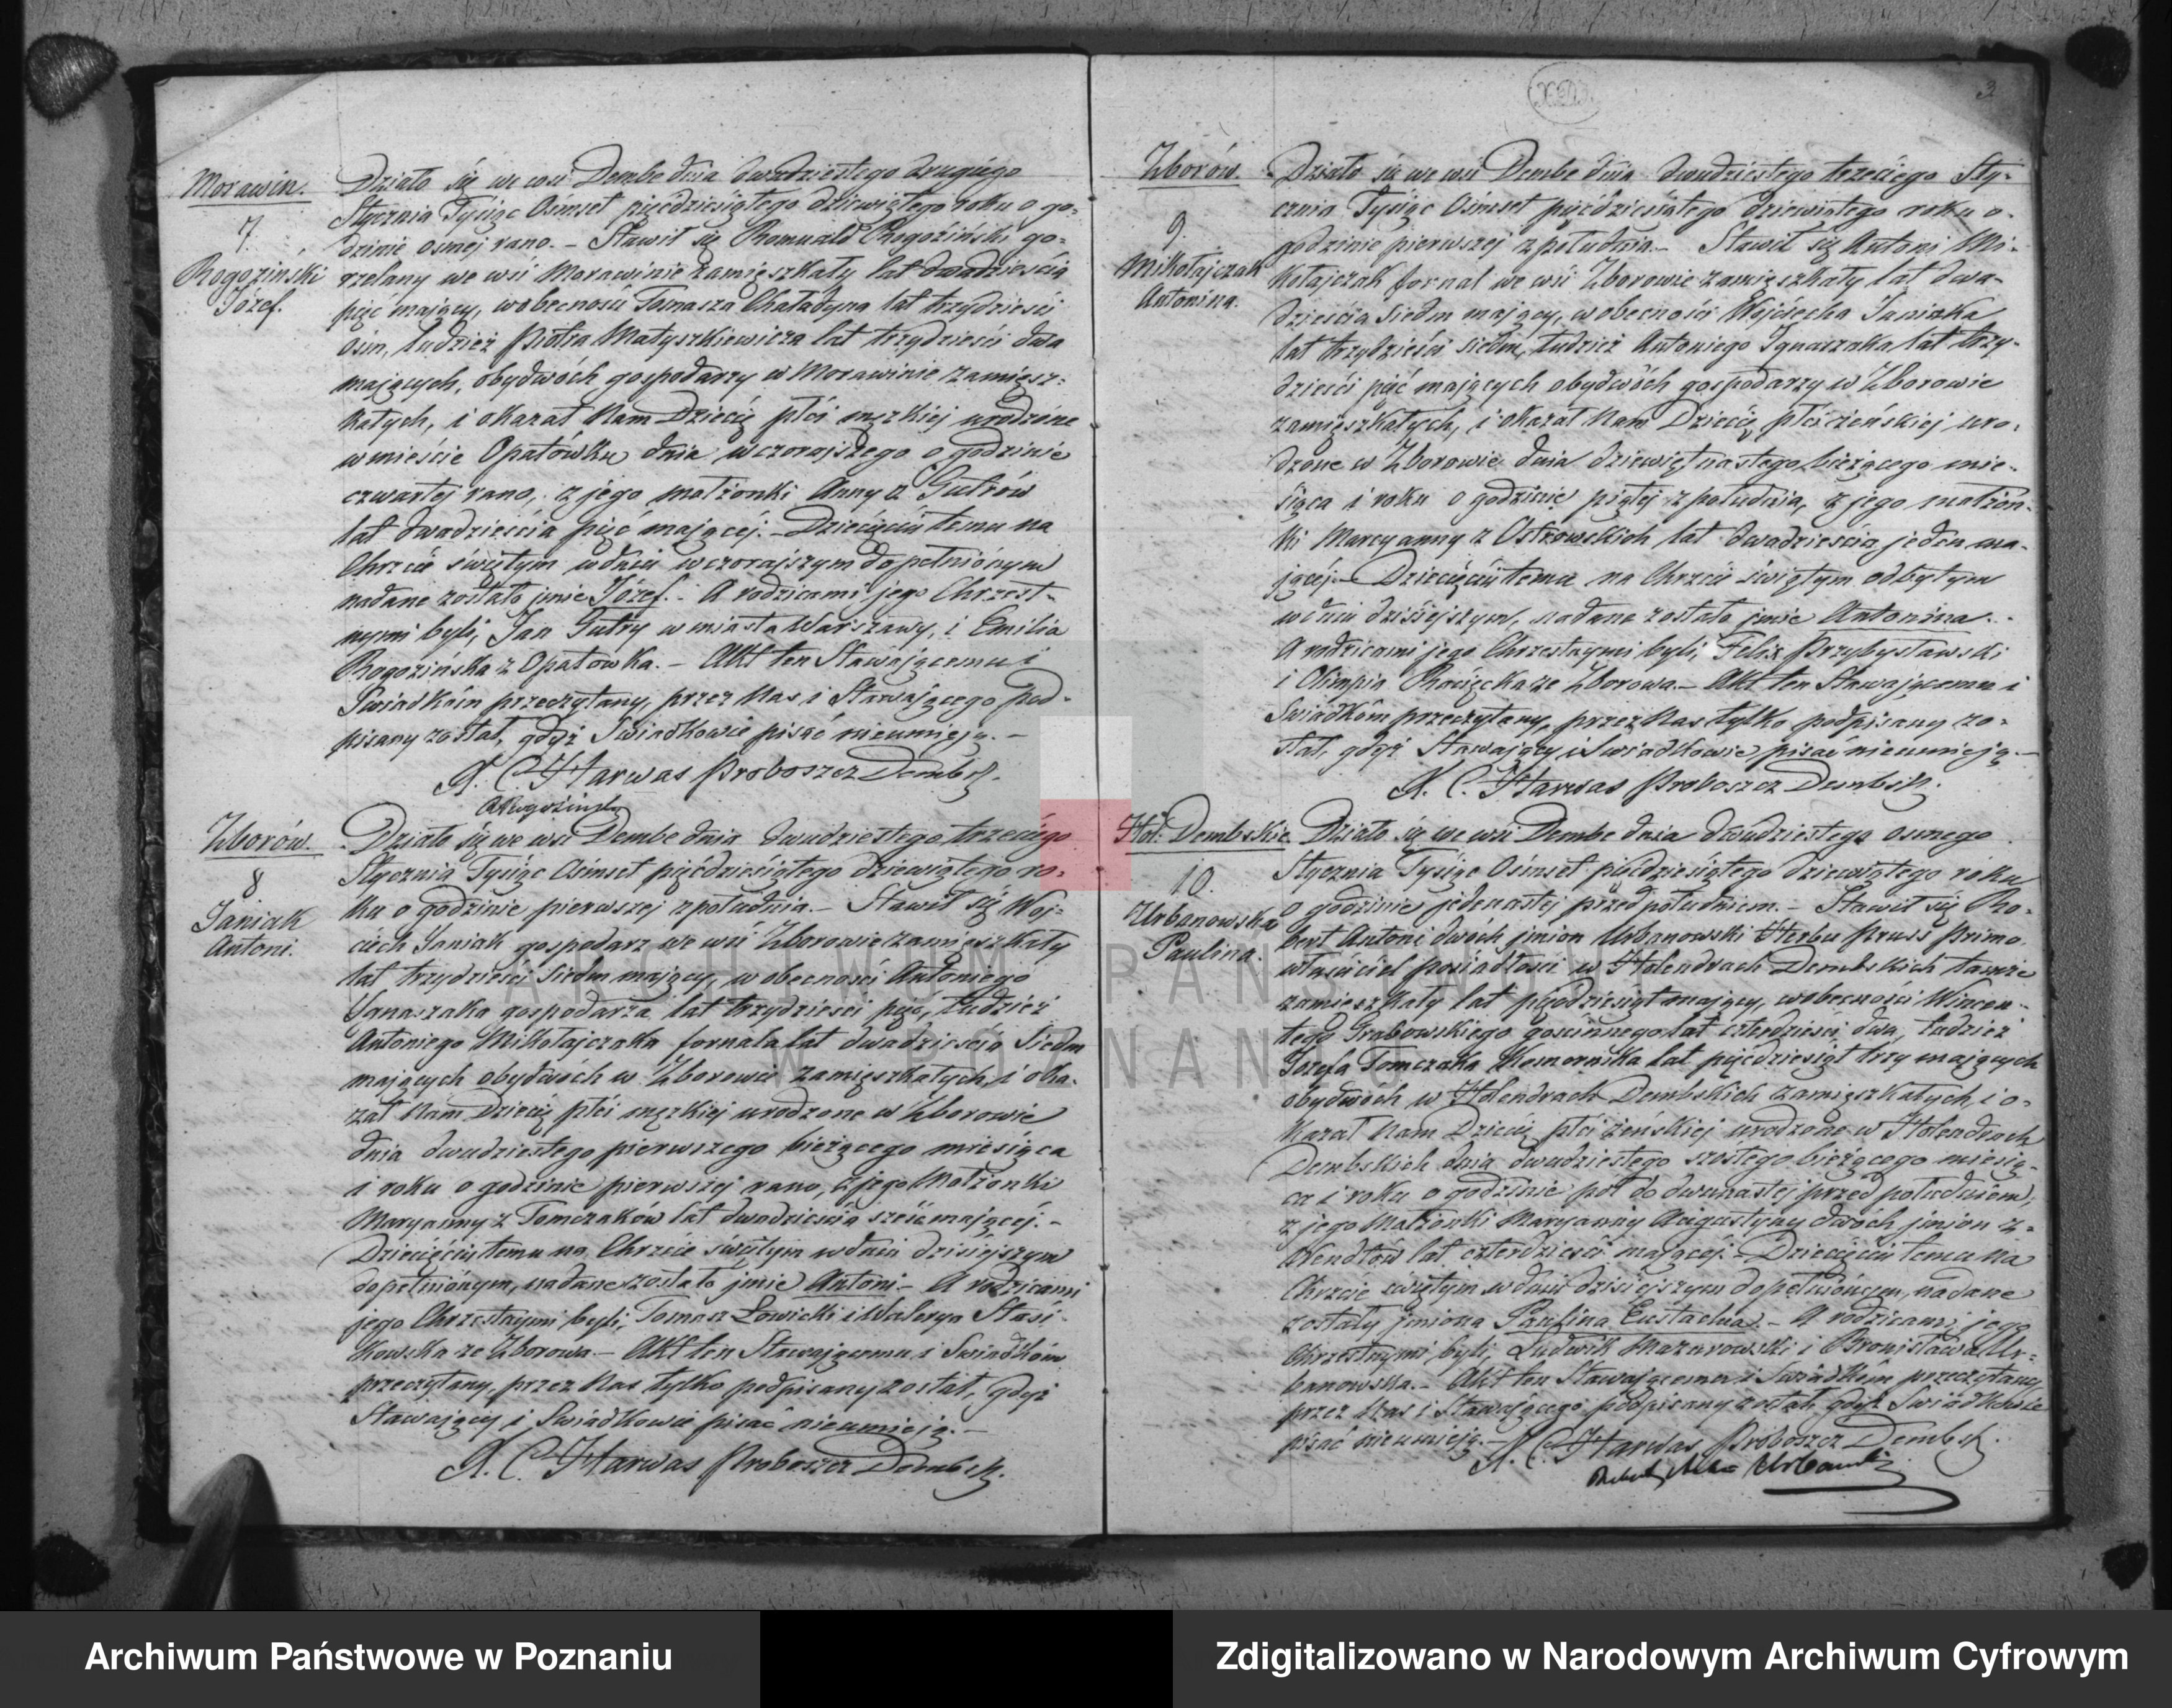 Morawin.
7.
Rogoziński
Józef.
Działo się we wsi Dembe dnia dwudziestego drugiego
Stycznia Tysiąc Ośmset pięćdziesiątego dziewiątego roku o go-
dzinie osmej rano. – Stawił się Romuald Rogoziński go-
rzelany we wsi Morawinie zamięszkały lat dwadzieścia
pięć mający, w obecności Tomasza Chaładyna lat trzydzieści
ośm, tudzież Piotra Matyszkiewicza lat trzydzieści dwa
mających, obydwóch gospodarzy w Morawinie zamięsz-
kałych, i okazał Nam Dziecię płci męzkiej urodzone
w mieście Opatówku dnia wczorajszego o godzinie
czwartej rano, z jego małżonki Anny z Gutrów
lat dwadzieścia pięć mającej. – Dziecięciu temu na
Chrzcie świętym w dniu wczorajszym dopełnionym
nadane zostało imie Józef. – A rodzicami jego Chrzest-
nymi byli, Jan Gutry w miasta Warszawy, i Emilia
Rogozińska z Opatówka. – Akt ten Stawającemu i
Świadkóm przeczytany, przez Nas i Stawającego pod-
pisany został, gdyż Świadkowie pisać nieumieją. –
X. C. Harwas Proboszcz Dembsk.
RRogoziński
Zborów.
8
Janiak
Antoni.
Działo się we wsi Dembe dnia dwudziestego trzeciego
Stycznia Tysiąc Ośmset pięćdziesiątego dziewiątego ro-
ku o godzinie pierwszej z południa. – Stawił się Woj-
ciech Janiak gospodarz we wsi Zborowie zamięszkały
lat trzydzieści siedm mający, w obecności Antoniego
Ignaszaka gospodarza lat trzydzieści pięć, tudzież
Antoniego Mikołajczaka fornala lat dwadzieścia siedm
mających obydwóch w Zborowie zamięszkałych, i oka-
zał Nam Dziecię płci męzkiej urodzone w Zborowie
dnia dwudziestego pierwszego bieżącego miesiąca
i roku o godzinie pierwszej rano, z jego Małżonki
Maryanny z Tomczaków lat dwadzieścia sześć mającej. –
Dziecięciu temu na Chrzcie świętym w dniu dzisiejszym
dopełnionym, nadane zostało imie Antoni – A rodzicami
jego Chrzestnymi byli, Tomasz Łowicki i Walerya Stasi-
kowska ze Zborowa – Akt ten Stawającemu i Świadkóm
przeczytany, przez Nas tylko podpisany został, gdyż
Stawający i Świadkowie pisać nieumieją. –
X. C. Harwas Proboszcz Dembsk.
3
Zborów.
9.
Mikołajczak
Antonina.
Działo się we wsi Dembe dnia dwudziestego trzeciego Sty-
cznia Tysiąc Ośmset pięćdziesiątego dziewiątego roku o
godzinie pierwszej z południa – Stawił się Antoni Mi-
kołajczak fornal we wsi Zborowie zamięszkały lat dwa-
dzieścia siedm mający, w obecności Wojciecha Janiaka
lat trzydzieści siedm, tudzież Antoniego Ignaszaka lat trzy-
dzieści pięć mających obydwóch gospodarzy w Zborowie
zamięszkałych, i okazał Nam Dziecię płci żeńskiej uro-
dzone w Zborowie dnia dziewiętnastego bieżącego mie-
siąca i roku o godzinie piątej z południa, z jego małżon-
ki Maryanny z Ostrowskich lat dwadzieścia jeden ma-
jącej. – Dziecięciu temu na Chrzcie świętym odbytym
w dniu dzisiejszym, nadane zostało imie Antonina. –
A rodzicami jego Chrzestnymi byli, Felix Przybysławski
i Olimpia Rocięcka ze Zborowa. – Akt ten Stawającemu i
Świadkóm przeczytany, przez Nas tylko podpisany zo-
stał, gdyż Stawający i Świadkowie pisać nieumieją. –
X. C. Harwas Proboszcz Dembsk.
Hol. Dembskie
10.
Urbanowska
Paulina.
Działo się we wsi Dembe dnia dwudziestego osmego
Stycznia Tysiąc Ośmset pięćdziesiątego dziewiątego roku
o godzinie jedenastej przed południem. – Stawił się Ro-
bert Antoni dwóch imion Urbanowski Herbu Pruss Primo
właściciel posiadłości w Holendrach Dembskich tamże
zamieszkały lat pięćdziesiąt mający, w obecności Wincen-
tego Grabowskiego gościnnego lat czterdzieści dwa, tudzież
Józefa Tomczaka Komornika lat pięćdziesiąt trzy mających
obydwóch w Holendrach Dembskich zamięszkałych, i o-
kazał Nam Dziecię płci żeńskiej urodzone w Holendrach
Dembskich dnia dwudziestego szóstego bieżącego miesią-
ca i roku o godzinie pół do dwunastej przed południem,
z jego Małżonki Maryanny Augustyny dwóch imion z
Wendtów lat czterdzieści mającej. – Dziecięciu temu na
Chrzcie świętym w dniu dzisiejszym dopełnionym, nadane
zostały imiona Paulina Eustachia. – A rodzicami jego
Chrzestnymi byli, Ludwik Mazurowski i Bronisława Ur-
banowska. – Akt ten Stawającemu i Świadkóm przeczytany
przez Nas i Stawającego podpisany został gdyż Świadkowie
pisać nieumieją. –
X. C. Harwas Proboszcz Dembsk.
ARCHIWUM PAŃSTWOWE
W POZNANIU
Archiwum Państwowe w Poznaniu
Zdigitalizowano w Narodowym Archiwum Cyfrowym